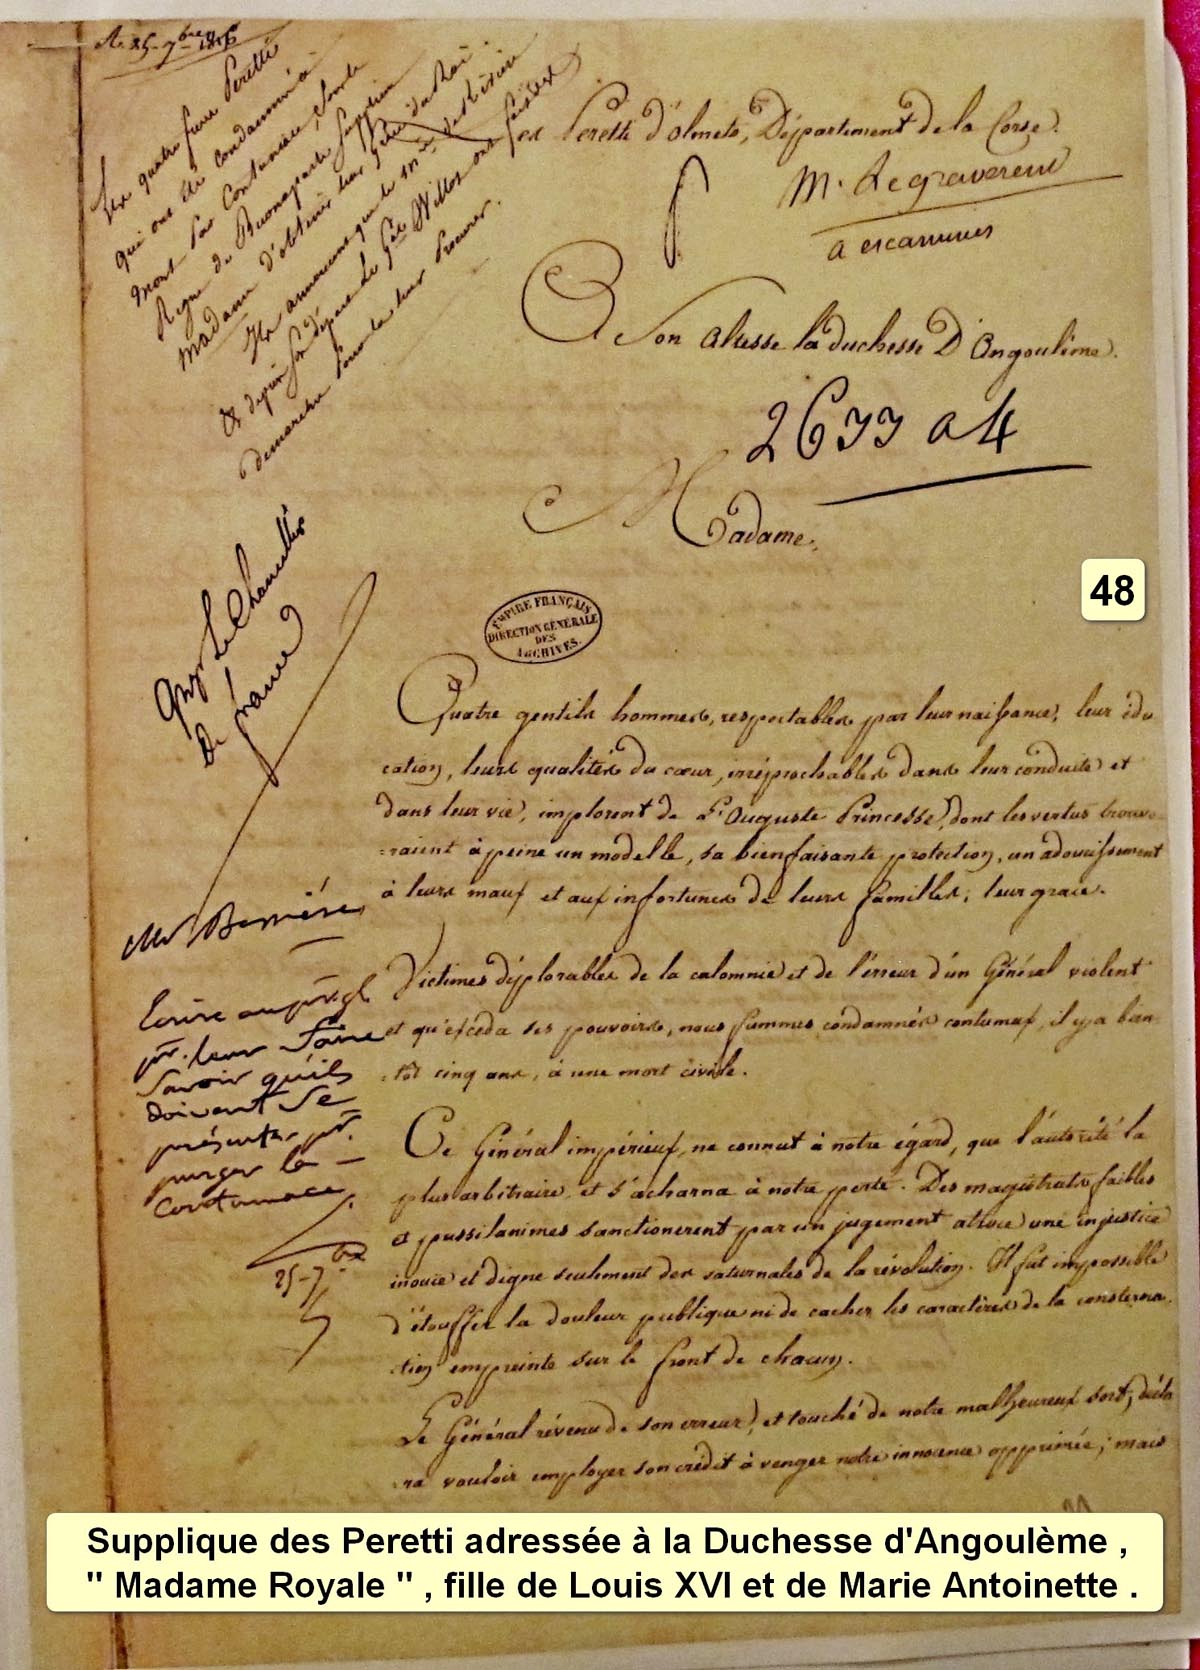 R. 25. 7bre 1816
Les quatre frères Peretti
qui ont été condamnés à
mort par contumace, sous le
Règne de Buonaparte supplient
Madame d'obtenir leur grâce du Roi
Ils annoncent que le Mis de Rivière
& depuis son départ le Gal Willot ont fait des
demarches pour la leur procurer.
les Peretti d'Olmeto, Département de la Corse.
M. Legraverend
a examiner
A Son Altesse la duchesse D'Angoulême.
2633 a 4
Madame,
48
EMPIRE FRANÇAIS
DIRECTION GÉNÉRALE
DES
ARCHIVES.
Le Chancelier
de france
Quatre gentils hommes, respectables par leur naissance, leur édu
cation, leurs qualités du cœur, irréprochables dans leur conduite et
dans leur vie, implorent de l'Auguste Princesse, dont les vertus trouve-
=raient à peine un modelle, sa bienfaisante protection, un adoucissement
à leurs maux et aux infortunes de leurs familles; leur grace.
Mr Barrière
Victimes déplorables de la calomnie et de l'érreur d'un Général violent
et qu'excéda ses pouvoirs, nous fummes condamnés contumax, il y a bien-
=tôt cinq ans, à une mort civile.
Ecrire au pr. gl
pr. leur faire
savoir qu'ils
doivent se
présenter pr.
purger la
contumace
25-7bre
Ce Général impérieux, ne connut à notre égard, que l'autorité la
plus arbitraire, et s'acharna à notre perte. Des magistrats faibles
et pussilanimes sanctionerent par un jugement atroce une injustice
inouie et digne seulement des saturnales de la révolution. Il fut impossible
d'étouffer la douleur publique ni de cacher les caractères de la consterna-
=tion empreinte sur le front de chacun.
Le Général révenu de son erreur, et touché de notre malheureux sort, décla
=ra vouloir employer son crédit à venger notre innocence opprimée; mais
Supplique des Peretti adressée à la Duchesse d'Angoulème ,
" Madame Royale " , fille de Louis XVI et de Marie Antoinette .